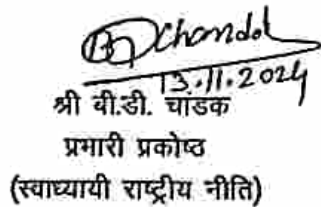 BD Chandak
13.11.2024
श्री बी.डी. चांडक
प्रभारी प्रकोष्ठ
(स्वाध्यायी राष्ट्रीय नीति)